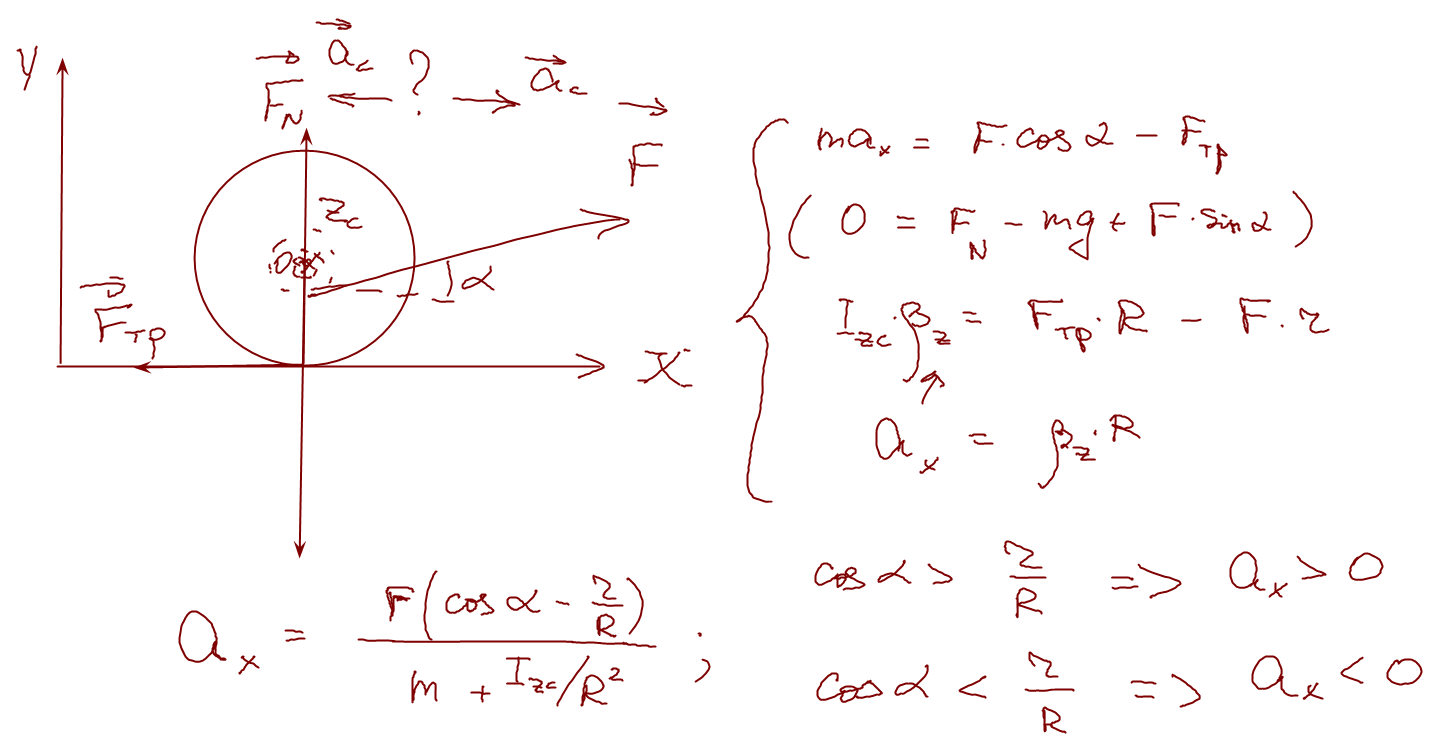 y
a⃗_c
F⃗_N ← ? → a⃗_c
F⃗
z_c
α
F⃗_тр
x
ma_x = F·cos α − F_тр
( 0 = F_N − mg + F·sin α )
I_zc·β_z = F_тр·R − F·r
a_x = β_z·R
a_x = F(cos α − r/R) / (m + I_zc/R²) ;
cos α > r/R => a_x > 0
cos α < r/R => a_x < 0